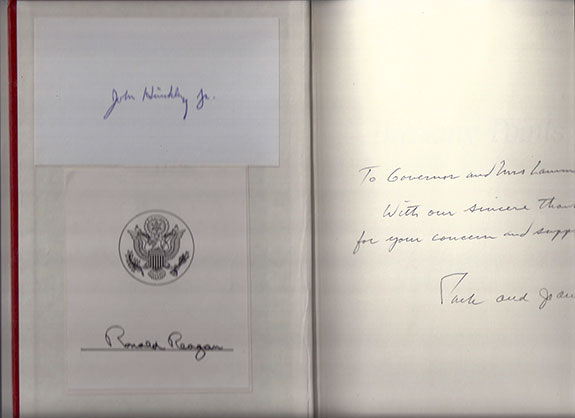 John Hinckley Jr.
Ronald Reagan
To Governor and Mrs Lamm
With our sincere than
for your concern and supp
Jack and Joan